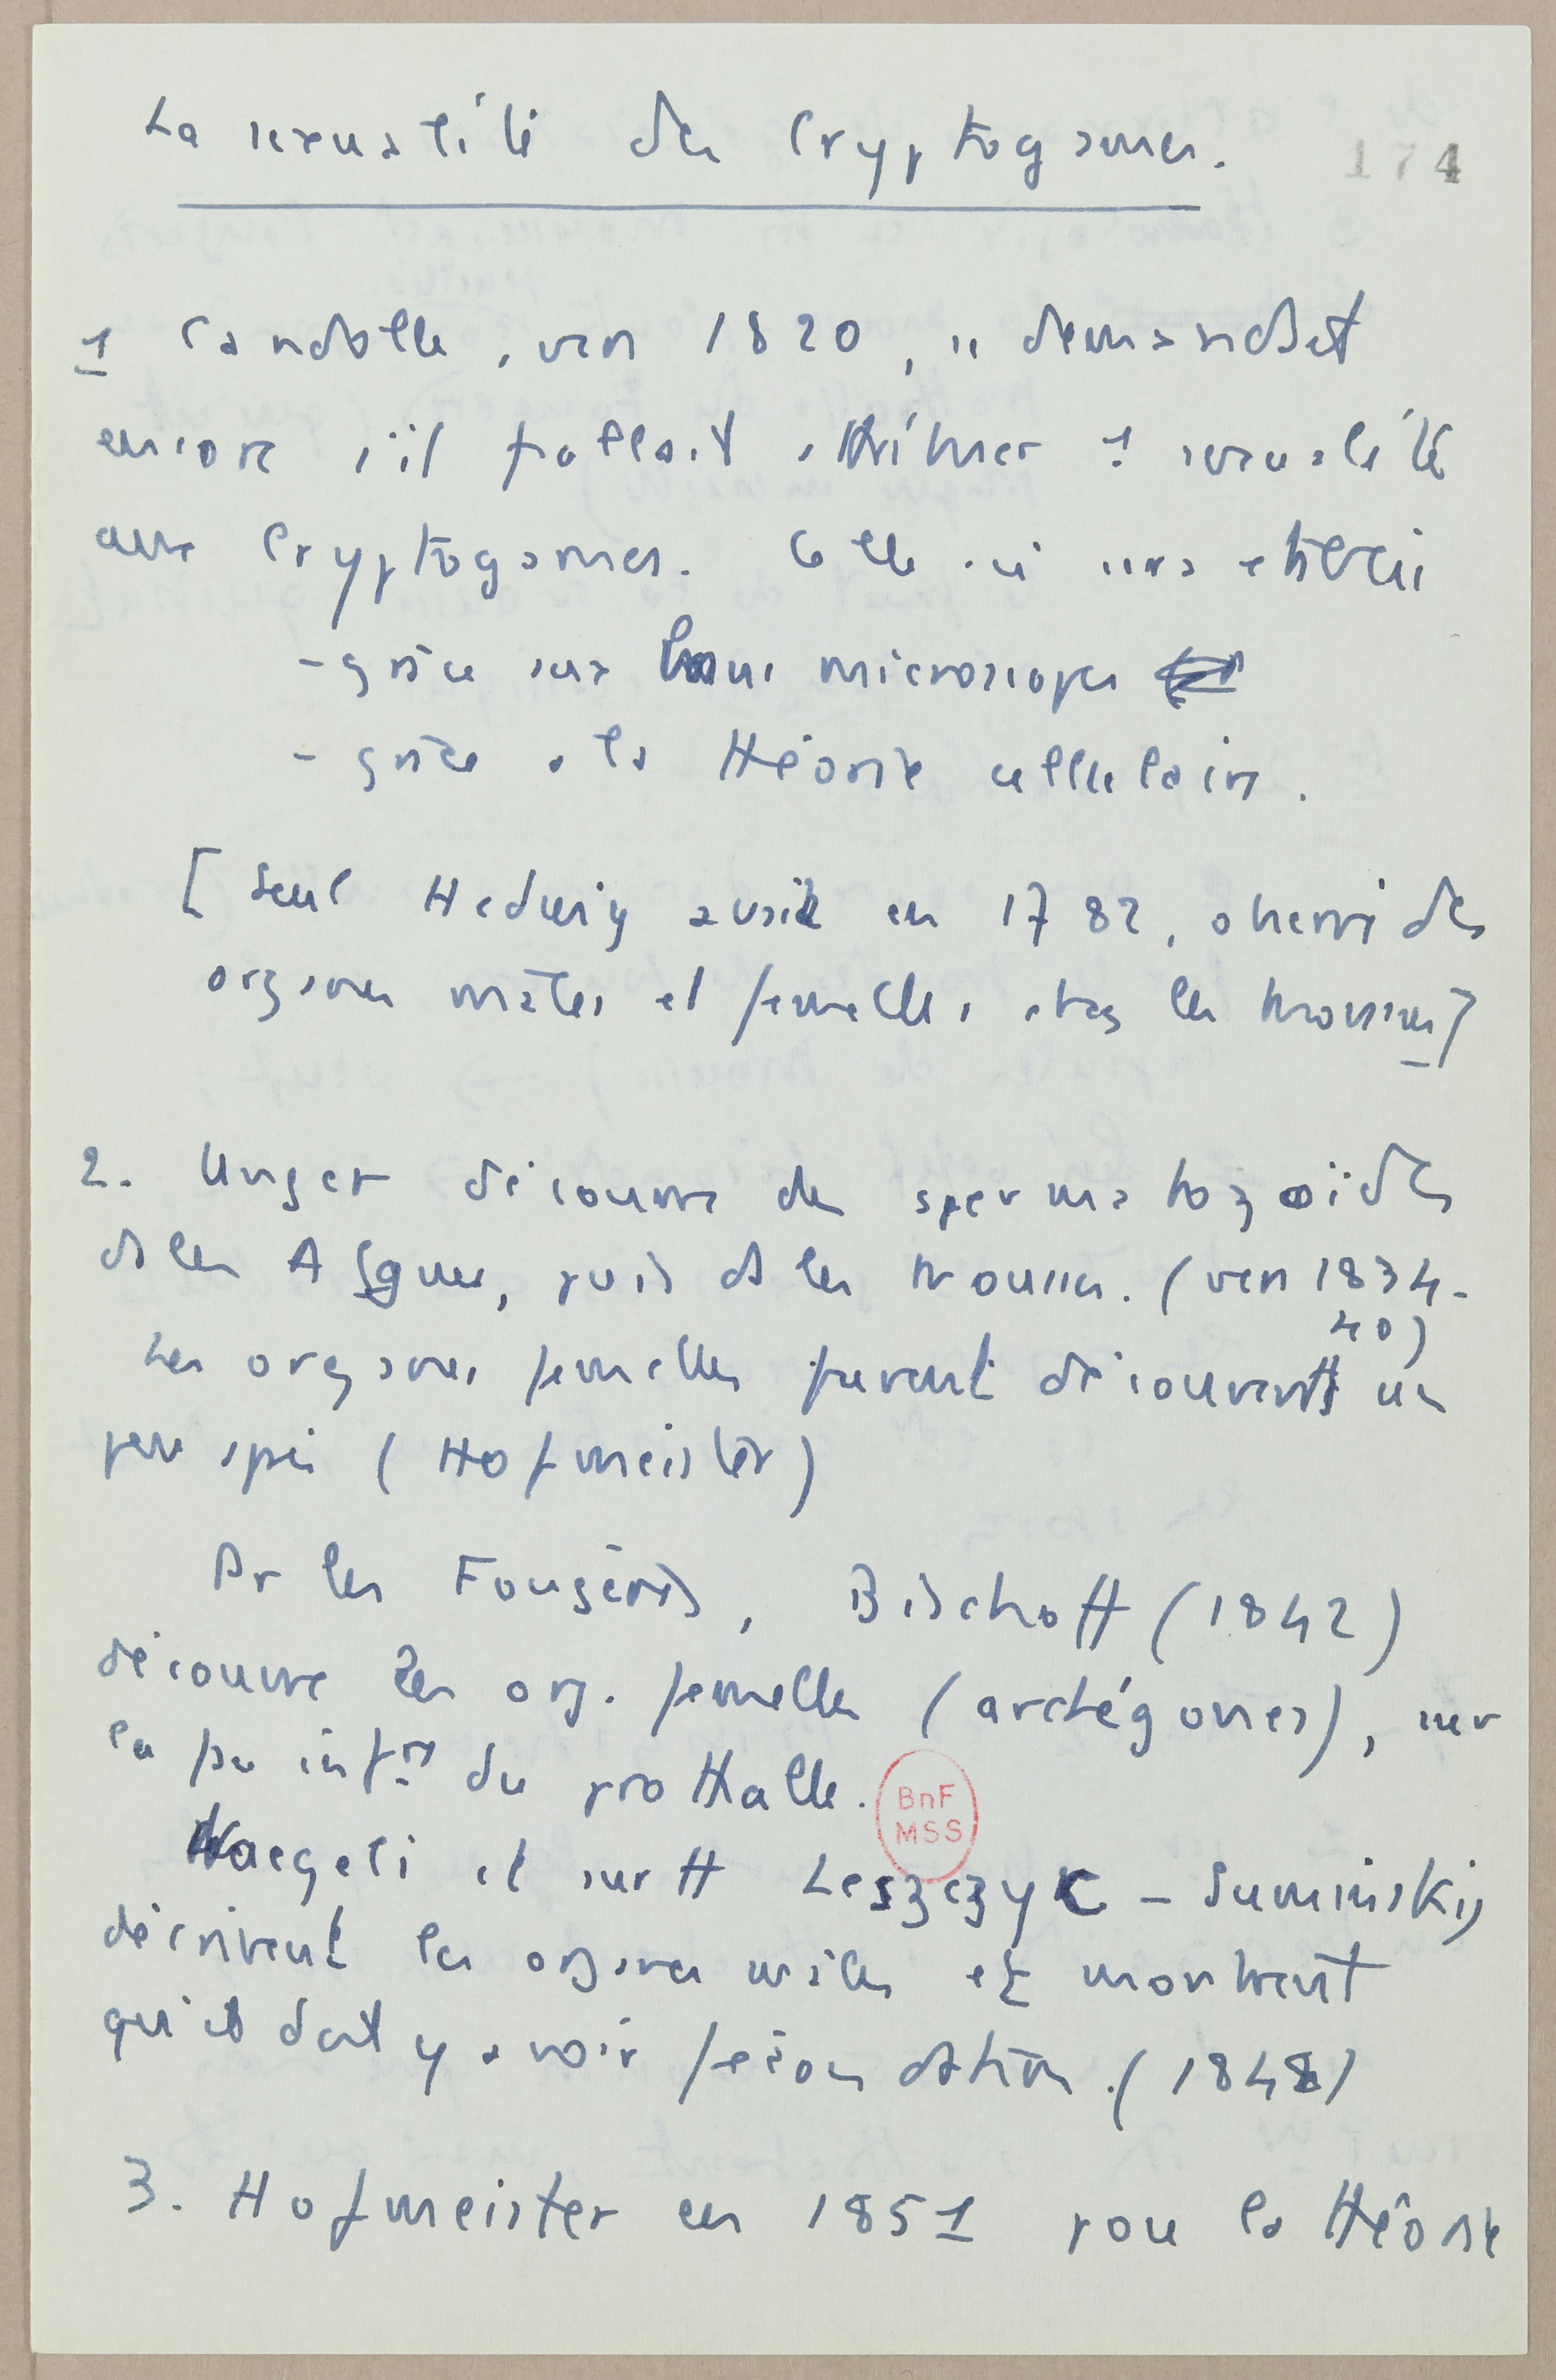 La sexualité des Cryptogames.
174
1 Candolle, vers 1820, se demandait
encore s'il fallait attribuer 1 sexualité
aux Cryptogames. Celle-ci sera établie
- grâce aux bons microscopes
- grâce à la théorie cellulaire.
[Seul Hedwig avait en 1782, observé des
organes mâles et femelles chez les mousses]
2. Unger découvre des spermatozoïdes
ds les Algues, puis ds les mousses. (vers 1834-
40)
Les organes femelles furent découverts un
peu après (Hofmeister)
Pr les Fougères, Bischoff (1842)
découvre les org. femelles (archégones), sur
la face infre du prothalle.
BnF
MSS
Naegeli et surtt Leszczyc-Suminski,
décrivent les organes mâles et montrent
qu'il doit y avoir fécondation. (1848)
3. Hofmeister en 1851 pose la théorie